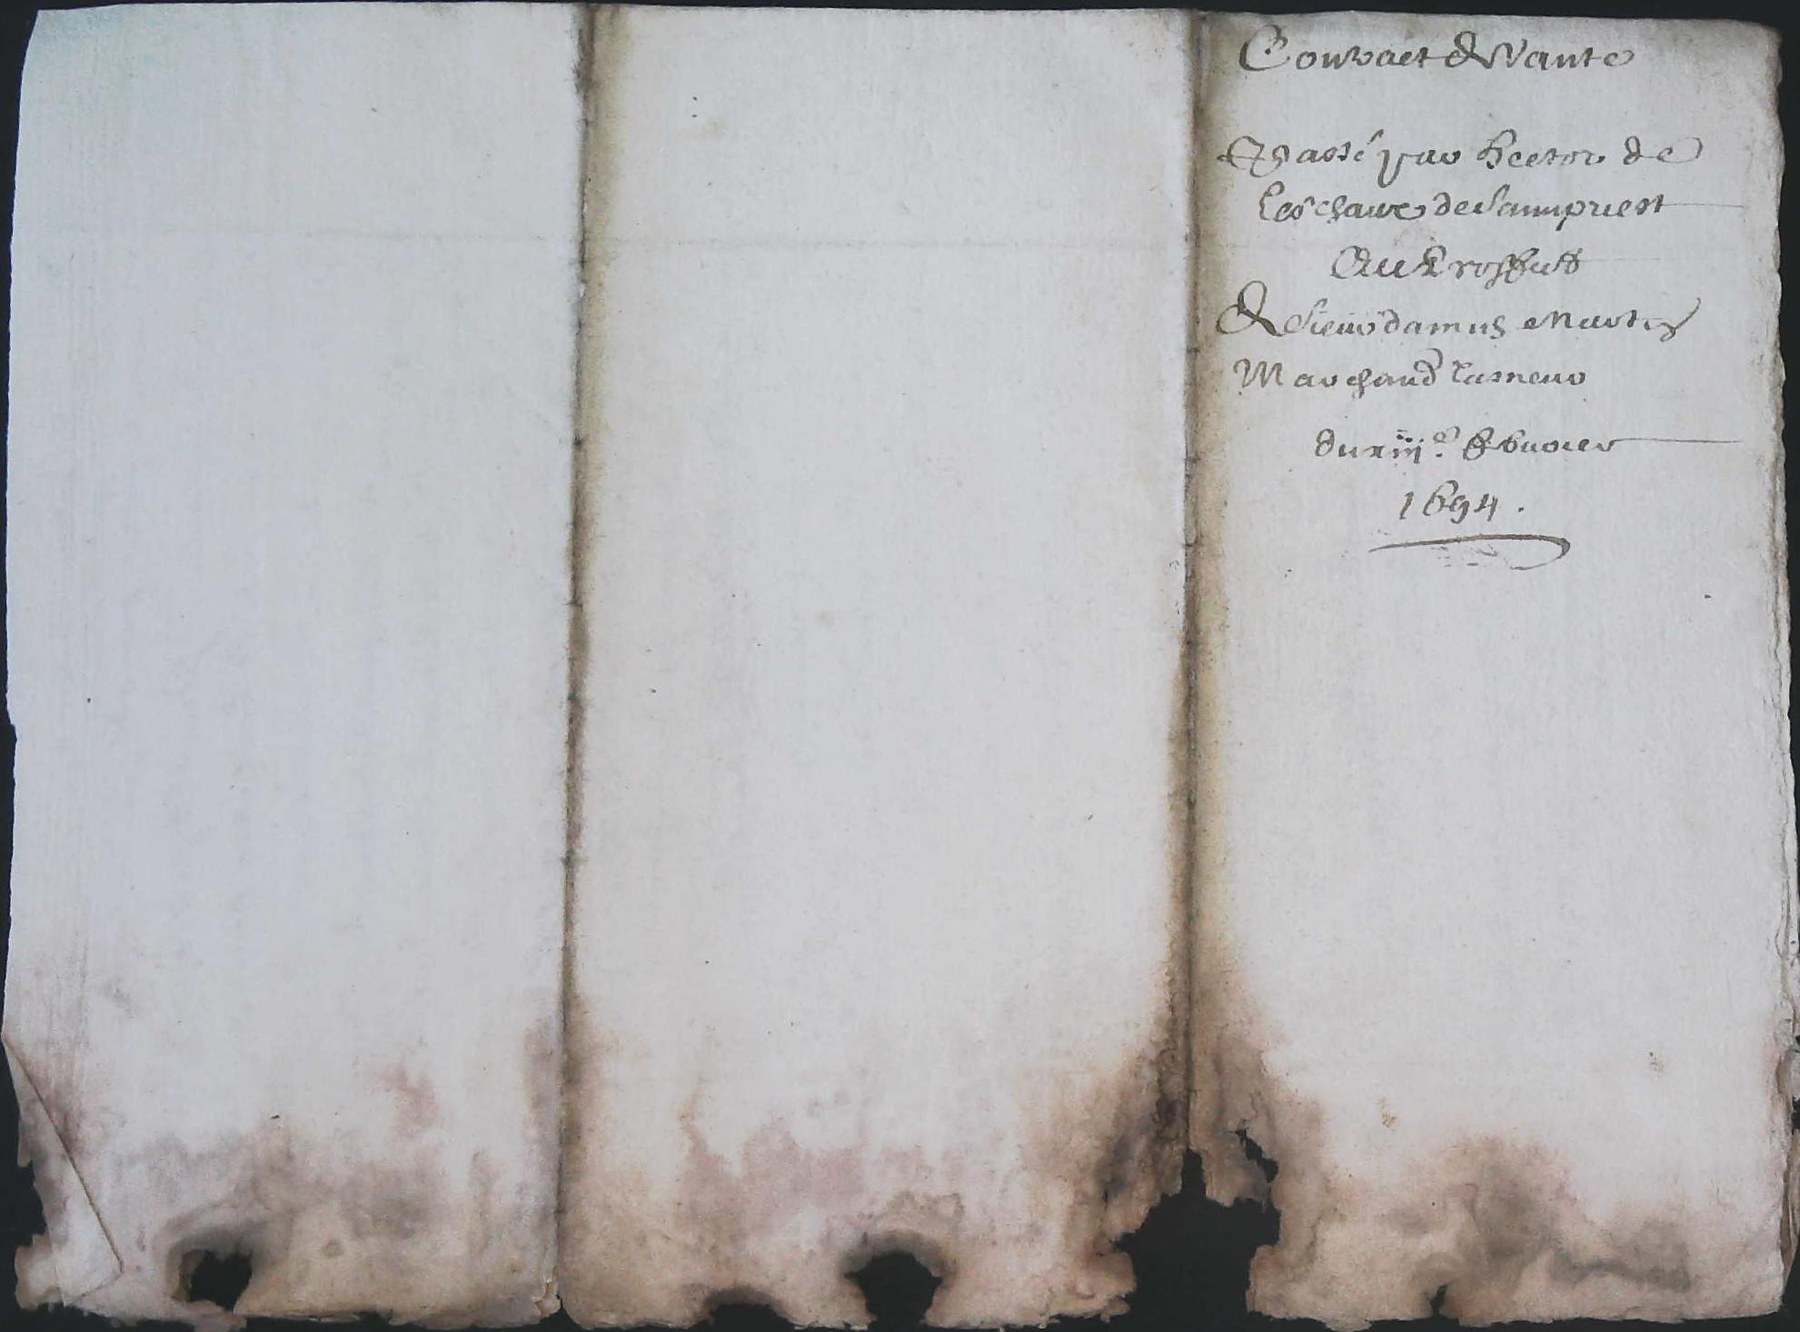 Contract de Vante
Passé par Hector de
Leschaux de Sainpriest
Au Proffict
de Sieur damus Martin
Marchand tasneur
du xiij.e febvrier
1694.